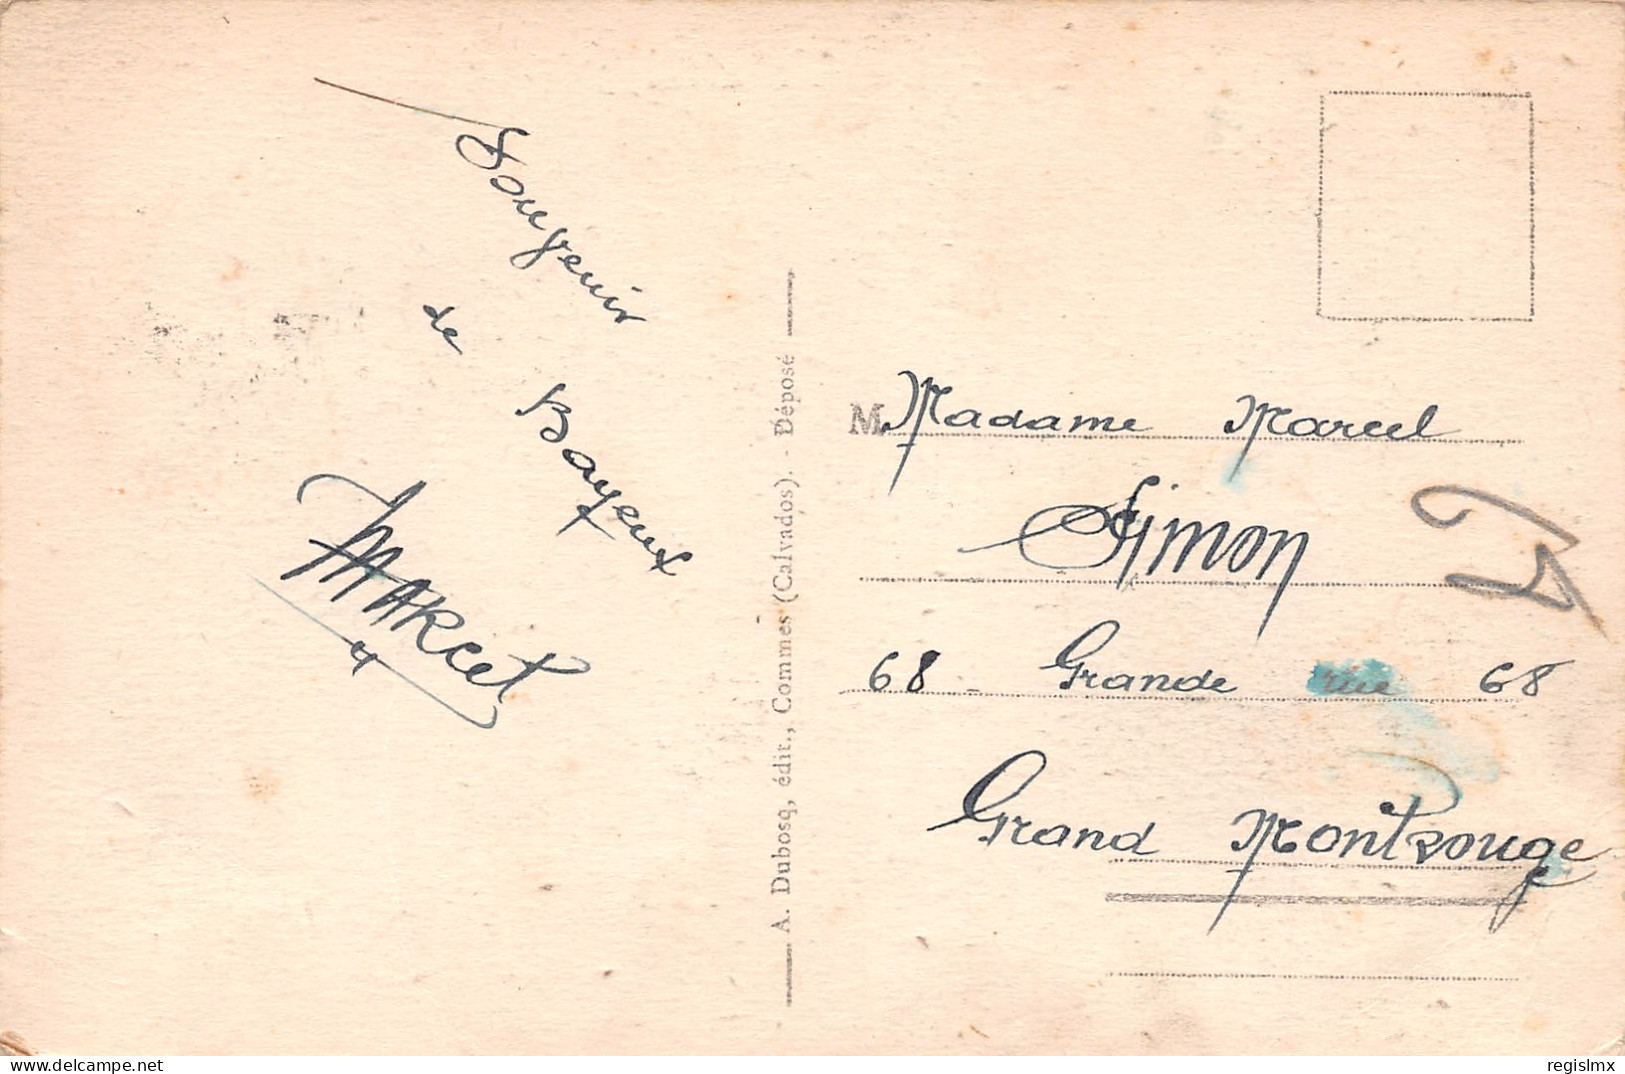 Souvenir
de Bayeux
MARcel
A. Dubosq, édit., Commes (Calvados). - Déposé
M Madame Marcel
Simon
68 - Grande rue 68
Grand Montrouge
www.delcampe.net
regislmx